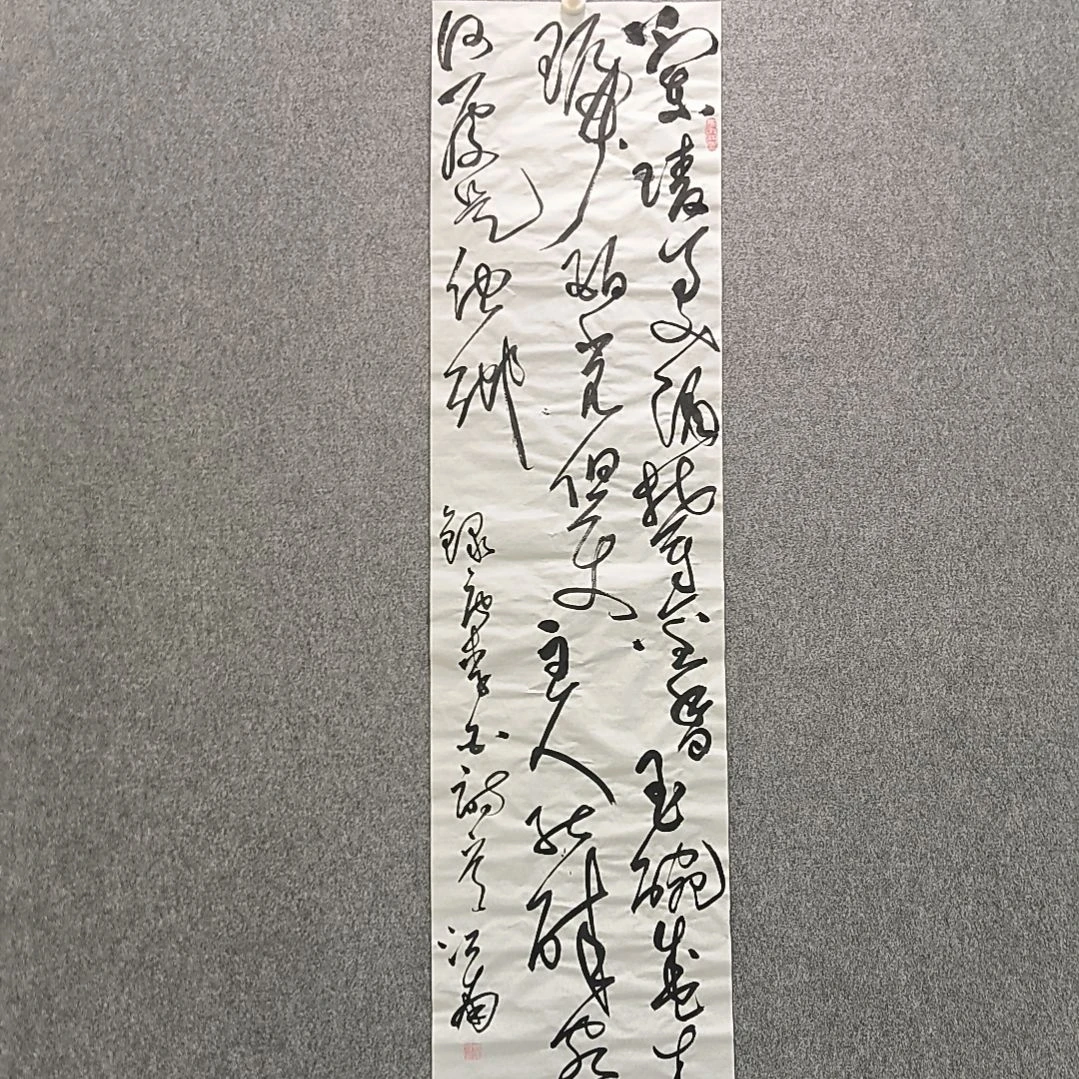 蘭陵美酒郁金香玉碗盛来
琥珀光但使主人能醉客
何處是他鄉 錄唐李白詩首 江南